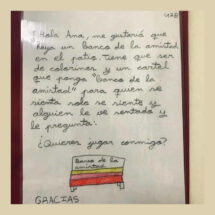 Hola Ana, me gustaría que
haya un banco de la amistad
en el patio. Tiene que ser
de colorines y un cartel
que ponga "banco de la
amistad" para quien se
sienta solo se siente y
alguien le ve sentado y
le pregunta:
¿Quieres jugar conmigo?
Banco de la
amistad
GRACIAS